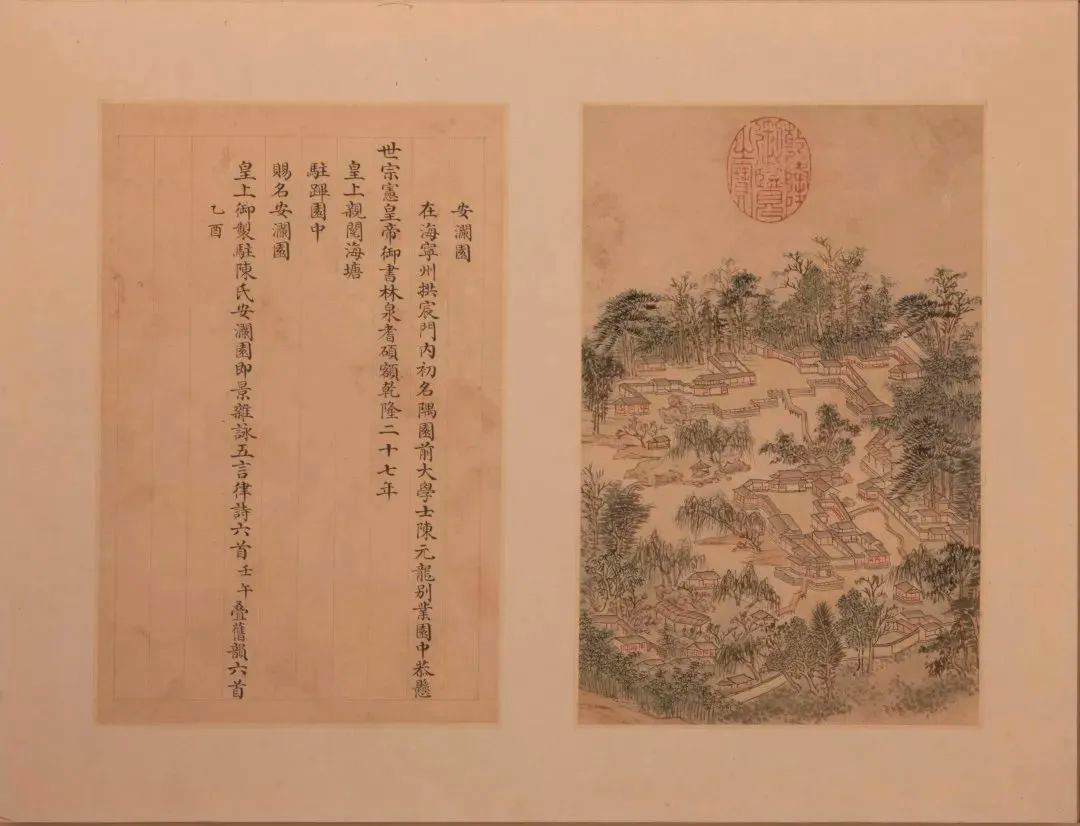 安瀾園
在海寧州拱宸門內初名隅園前大學士陳元龍別業園中恭懸
世宗憲皇帝御書林泉耆碩額乾隆二十七年
皇上親閱海塘
駐蹕園中
賜名安瀾園
皇上御製駐陳氏安瀾園即景雜詠五言律詩六首壬午疊舊韻六首
乙酉
乾隆御覽之寶